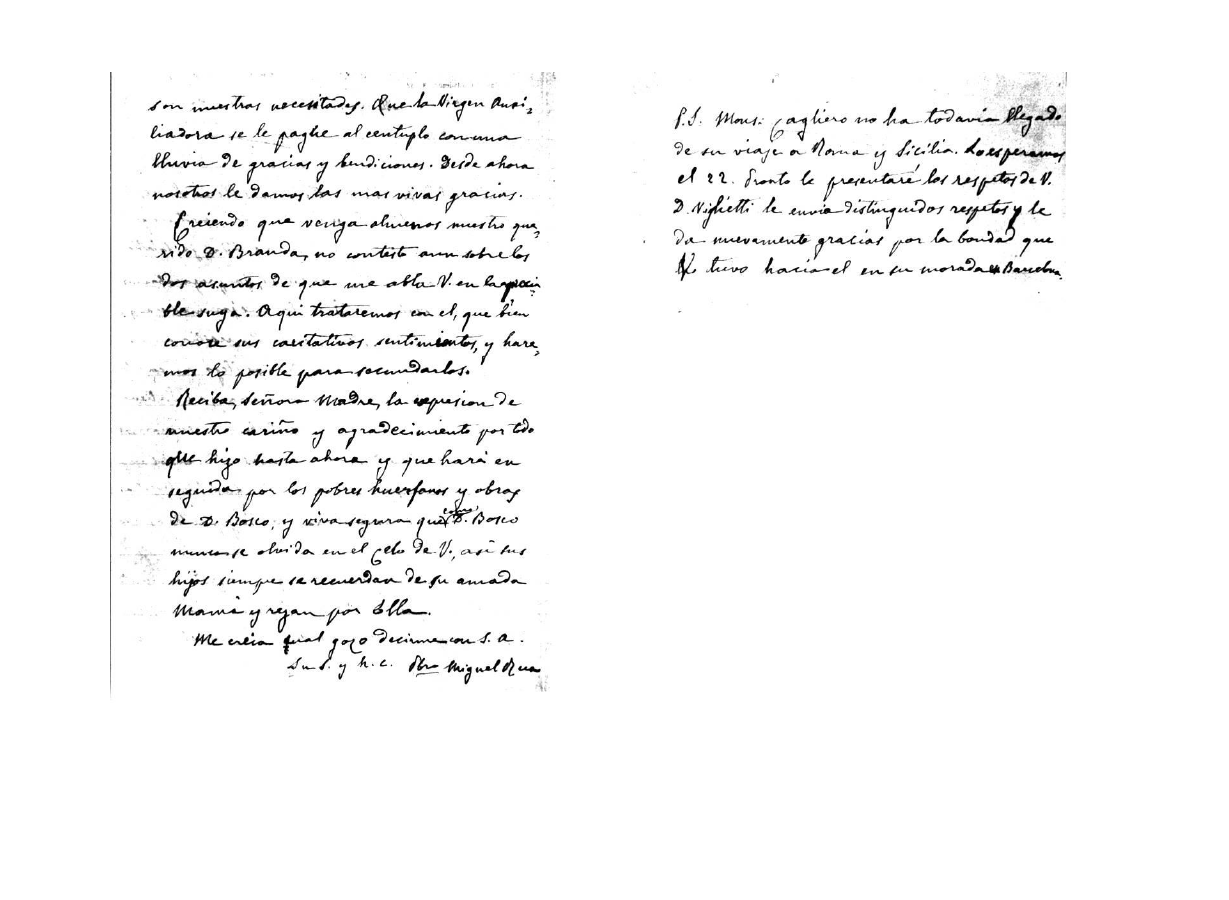 son nuestras necesitades. Que la Virgen Auxi,
liadora se le paghe al centuplo con una
lluvia de gracias y bendiciones. Desde ahora
nosotros le damos las mas vivas gracias.
Creiendo que venga almenos nuestro que,
rido D. Branda, no contesto aun sobre los
dos asuntos de que me abla V. en la
ble suya. Aqui trataremos con el, que bien
conoce sus caritativos sentimientos, y hare,
mos lo posible para secundarlos.
Reciba, Señora Madre, la expresion de
nuestro cariño y agradecimiento por todo
que hizo hasta ahora y que hará en
seguida por los pobres huerfanos y obras
de D. Bosco, y viva segura que como D. Bosco
nunca se olvida en el Celo de V., asi sus
hijos siempre se recuerdan de su amada
Mamá y rezan por Ella.
Me creia qual gozo decirme con S. A.
Su S. y h. c. Pbro Miguel Rua
P.S. Mons. Cagliero no ha todavia llegado
de su viaje a Roma y Sicilia. Lo esperamos
el 22. Pronto le presentaré los respetos de V.
D. Viglietti le envia distinguidos respetos y le
da nuevamente gracias por la bondad que
V. tuvo hacia el en su morada en Barcelona.